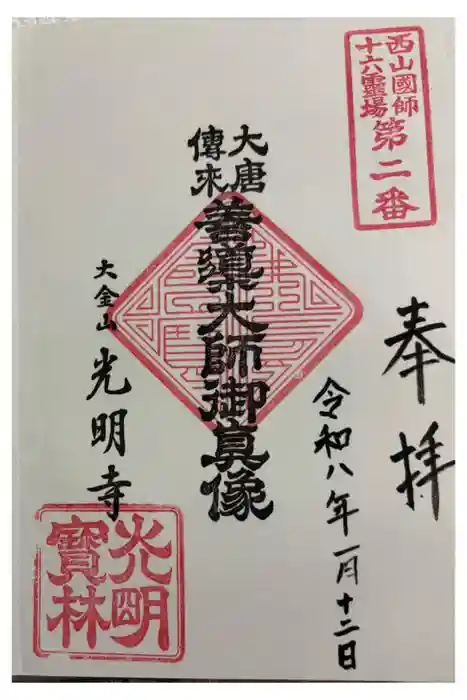 西山國師
十六霊場
第二番
奉拝
令和八年一月十二日
大唐
傳来
善導大師御真像
大金山
光明寺
光明
寶林